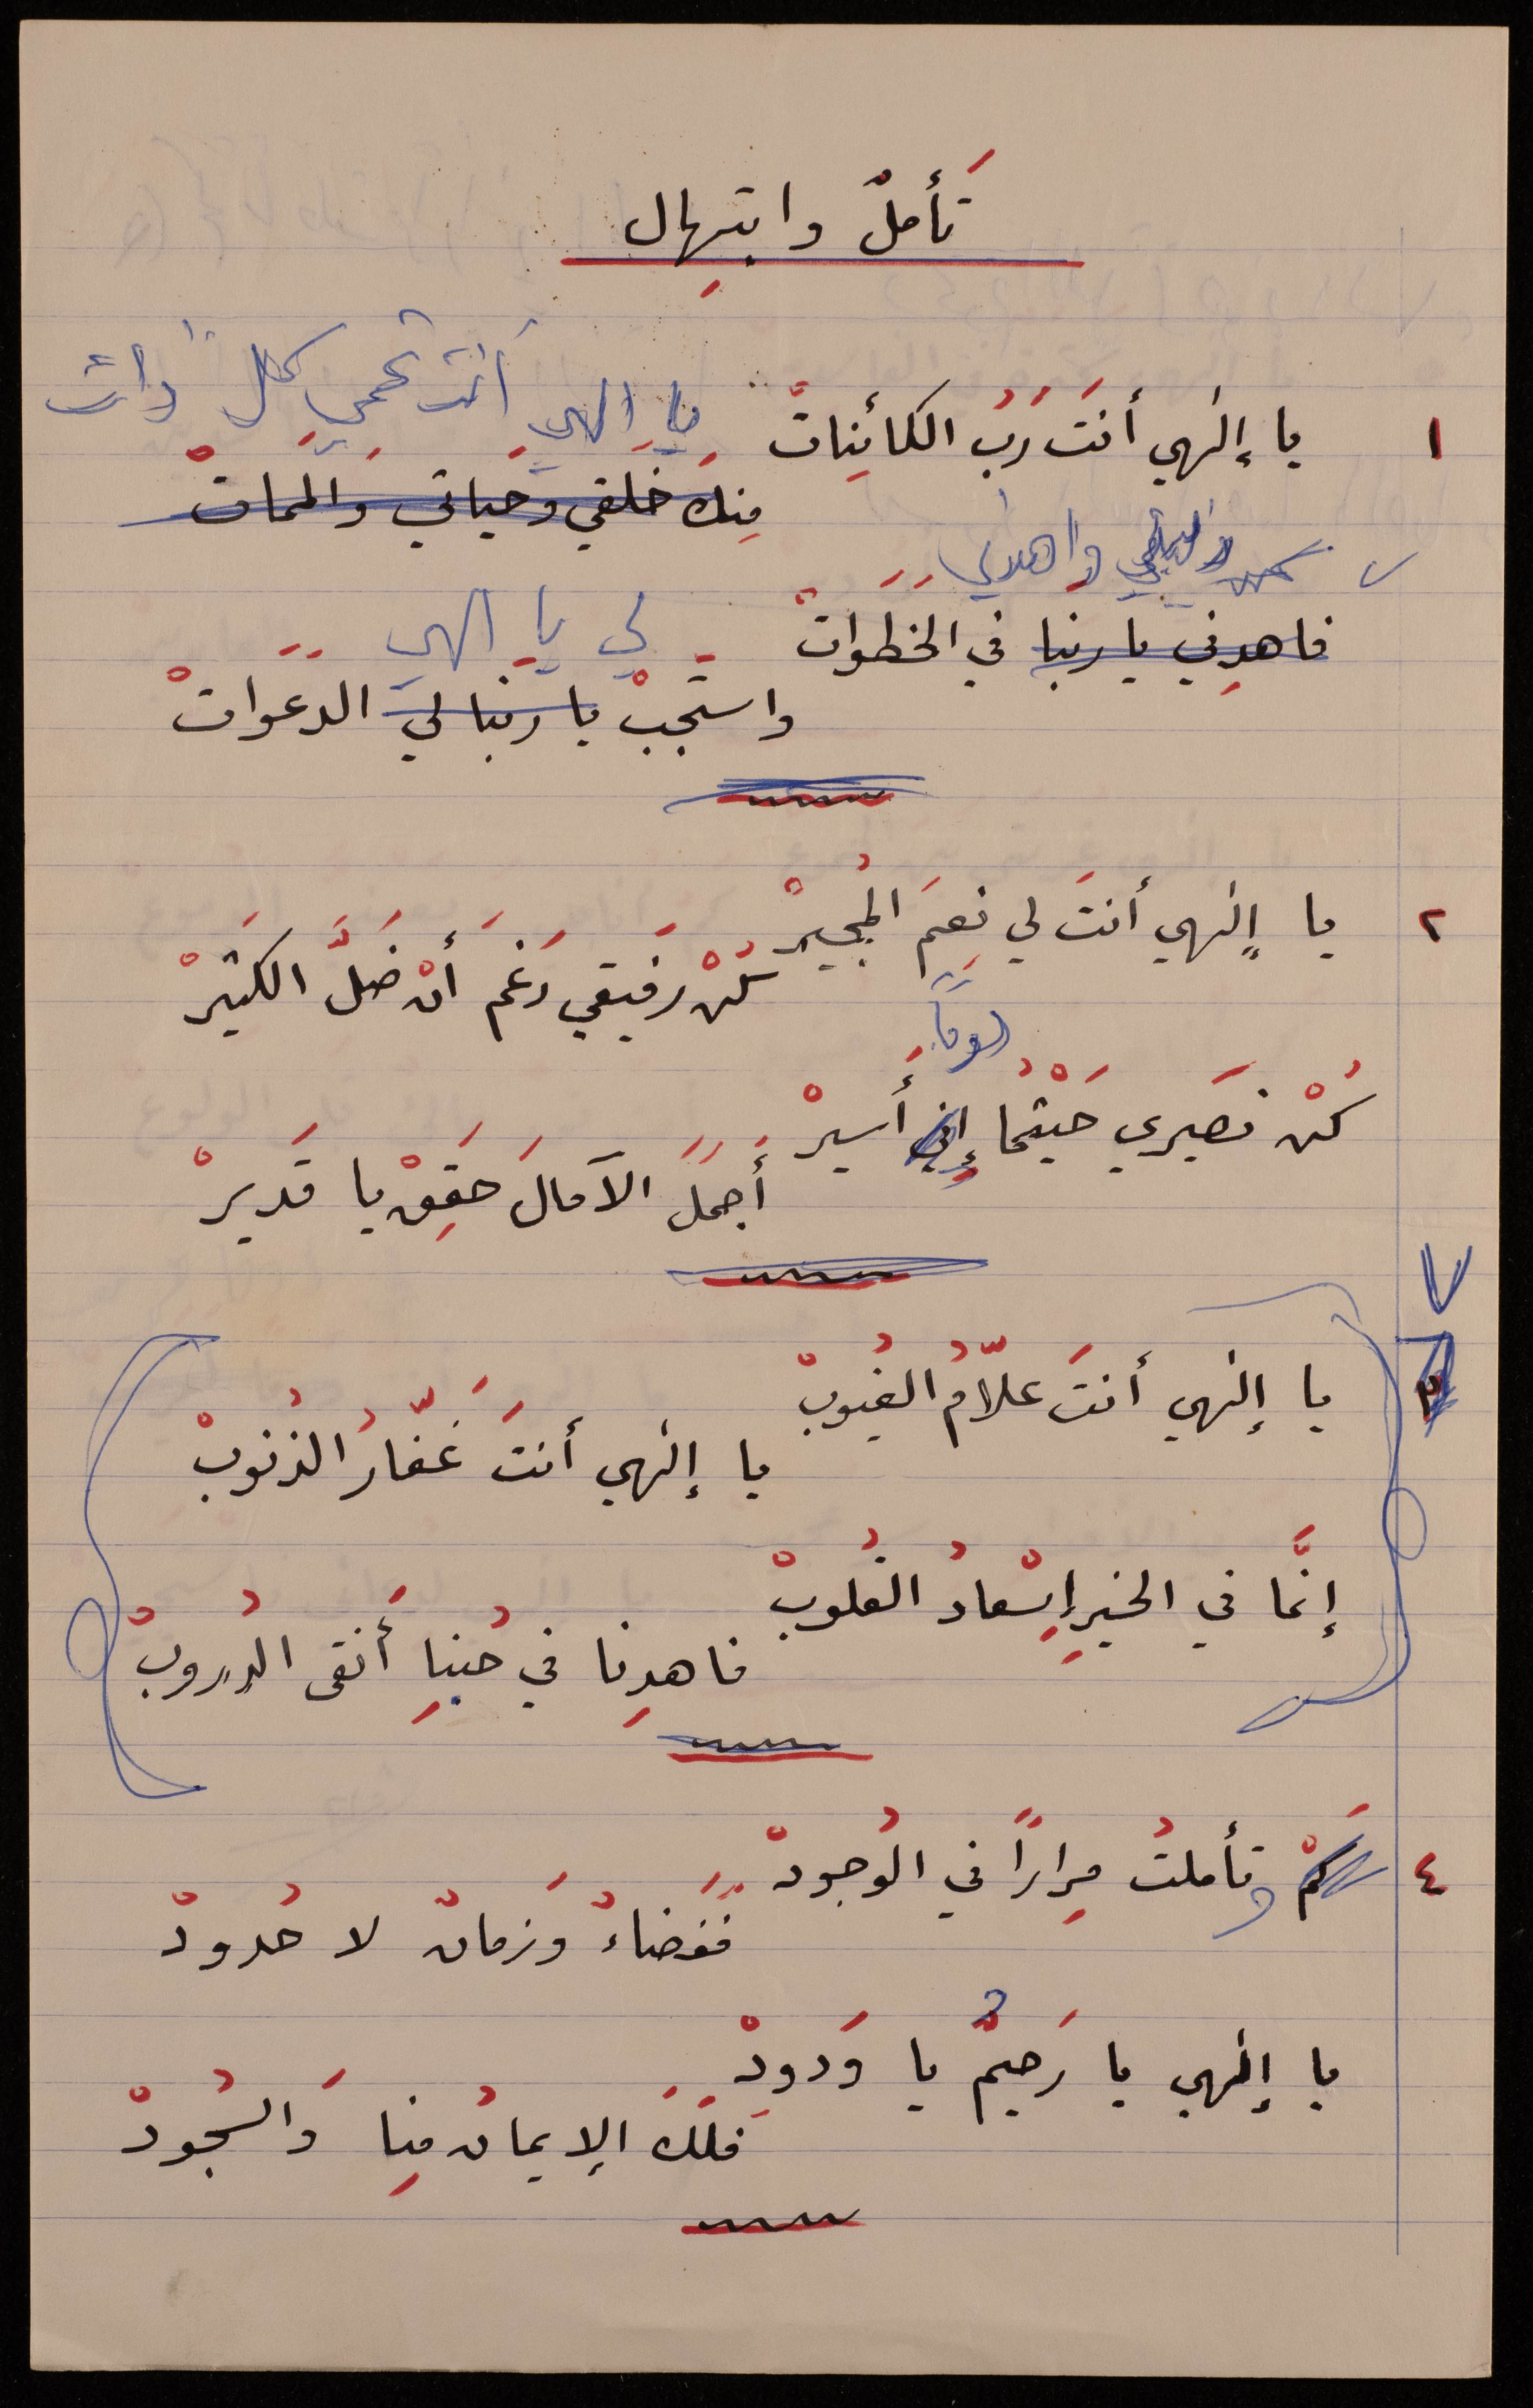 تَأملّ وابتِهال
١ يا إلٰهي أنتَ رَبُ الكائِناتْ
يا إلهي أنتَ تحمي كل ذات
مِنكَ خَلقي وحَياتي والمماتْ
واهدني
فاهدِني يا ربنا في الخَطَواتْ
لي يا الهي
واستَجبْ يا ربنا لي الدَعَواتْ
٢ يا إلٰهي أنتَ لي نِعمَ المُجيرْ
كُنْ رَفيقي رَغمَ أنْ ضَلَّ الكَثيرْ
دوماً
كُنْ نَصيري حَيْثُما إني أَسيرْ
أَجملَ الآمالَ حَقِقْ يا قَديرْ
٣ يا إلٰهي أنتَ علّامُ الغُيوبْ
يا إلٰهي أنتَ غَفّارُ الذُنوبْ
إنَّما في الخيرِ إِسْعادُ القُلوبْ
فاهدِنا في حُبِنا أَنقى الدُروبْ
٤ كَمْ تأملتُ مِراراً في الوُجودْ
فَفَضاءٌ وزَمانٌ لا حُدودْ
يا إلٰهي يا رَحيمٌ يا وَدودْ
فَلَكَ الإيمانُ مِنا والسُجودْ